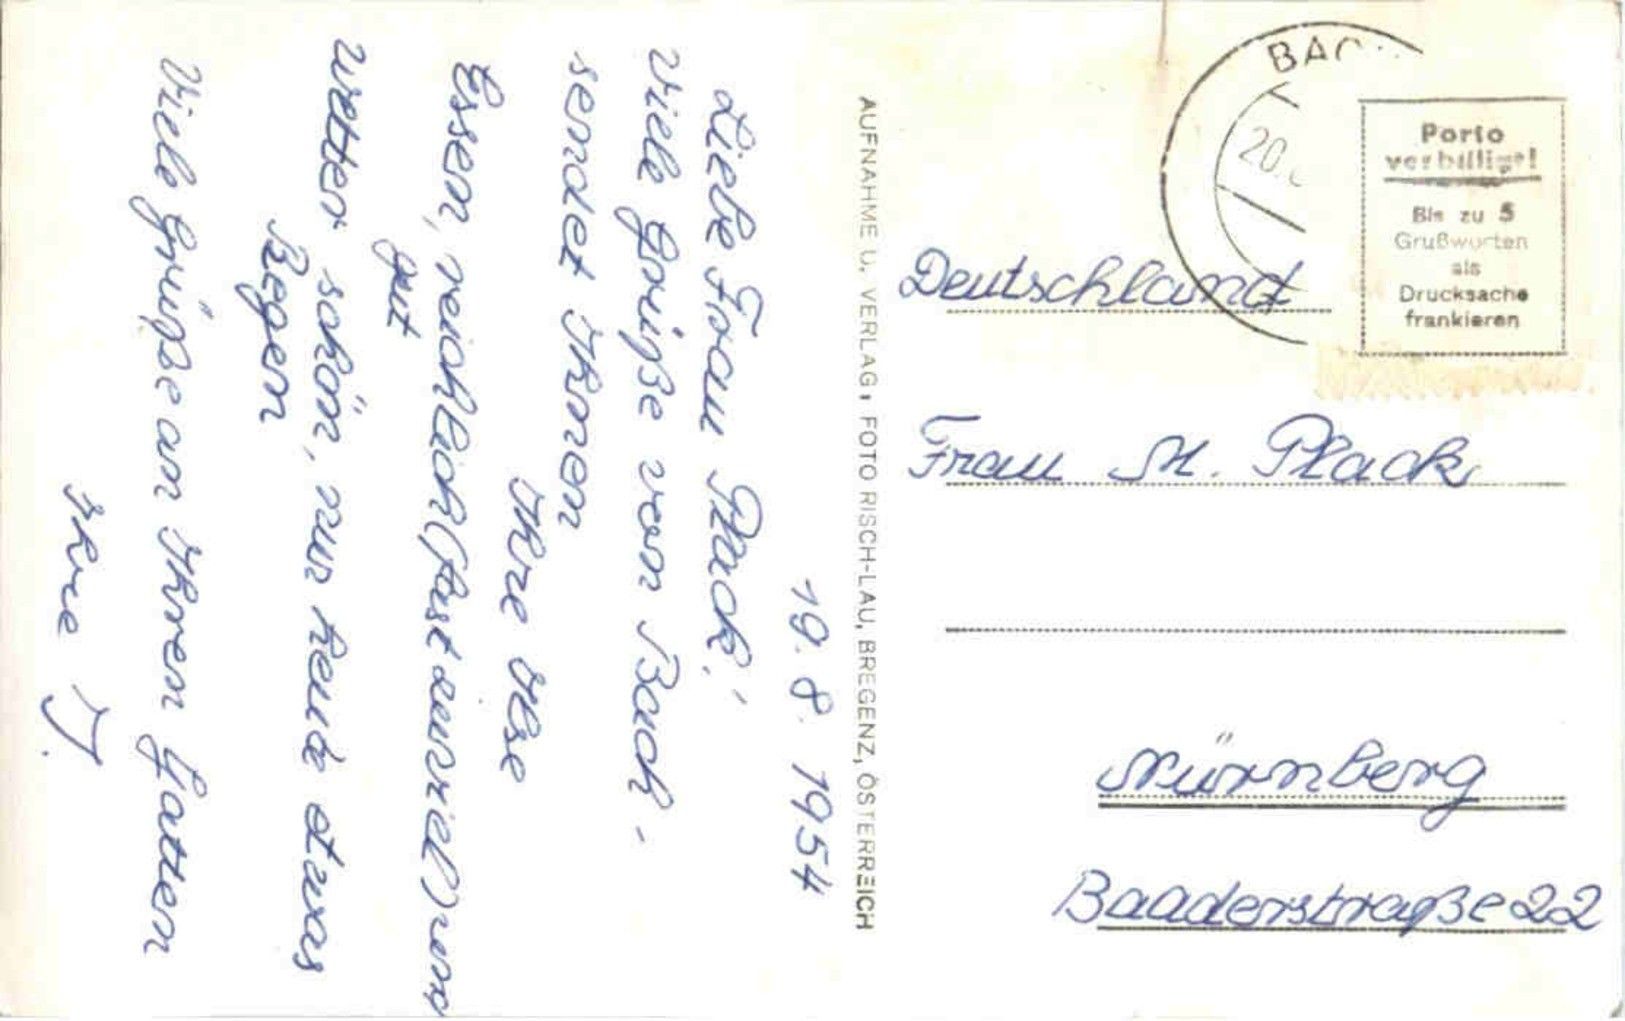 19. 8. 1954
Liebe Frau Plack!
Viele Grüße von Bach.
sendet Ihnen
Ihre Ilse
Essen, reichlich (fast zuviel) und
gut
Wetter schön, nur heute etwas
Regen
Viele Grüße an Ihren Gatten
Ihre J.
AUFNAHME U. VERLAG, FOTO RISCH-LAU, BREGENZ, ÖSTERREICH
BAC
20.
Porto
verbilligt!
Bis zu 5
Grußworten
als
Drucksache
frankieren
Deutschland
Frau M. Plack
Nürnberg
Baaderstraße 22